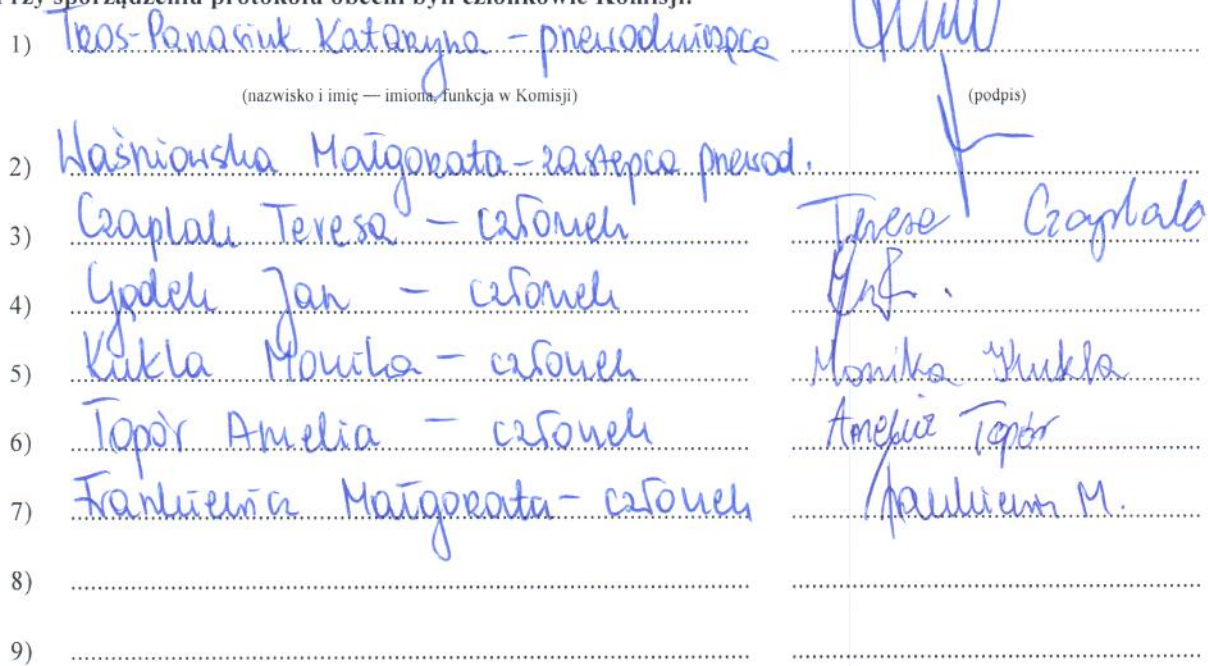 Przy sporządzeniu protokołu obecni byli członkowie Komisji:
1) Tros-Panasiuk Katarzyna - przewodnicząca
(nazwisko i imię — imiona, funkcja w Komisji) (podpis)
2) Waśniowska Małgorzata - zastępca przewod.
3) Czaplak Teresa - członek Teresa
4) Gądek Jan - członek
5) Kukla Monika - członek Monika Kukla
6) Topór Amelia - członek Amelia Topór
7) Frankiewicz Małgorzata - członek Frankiewicz M.
8)
9)